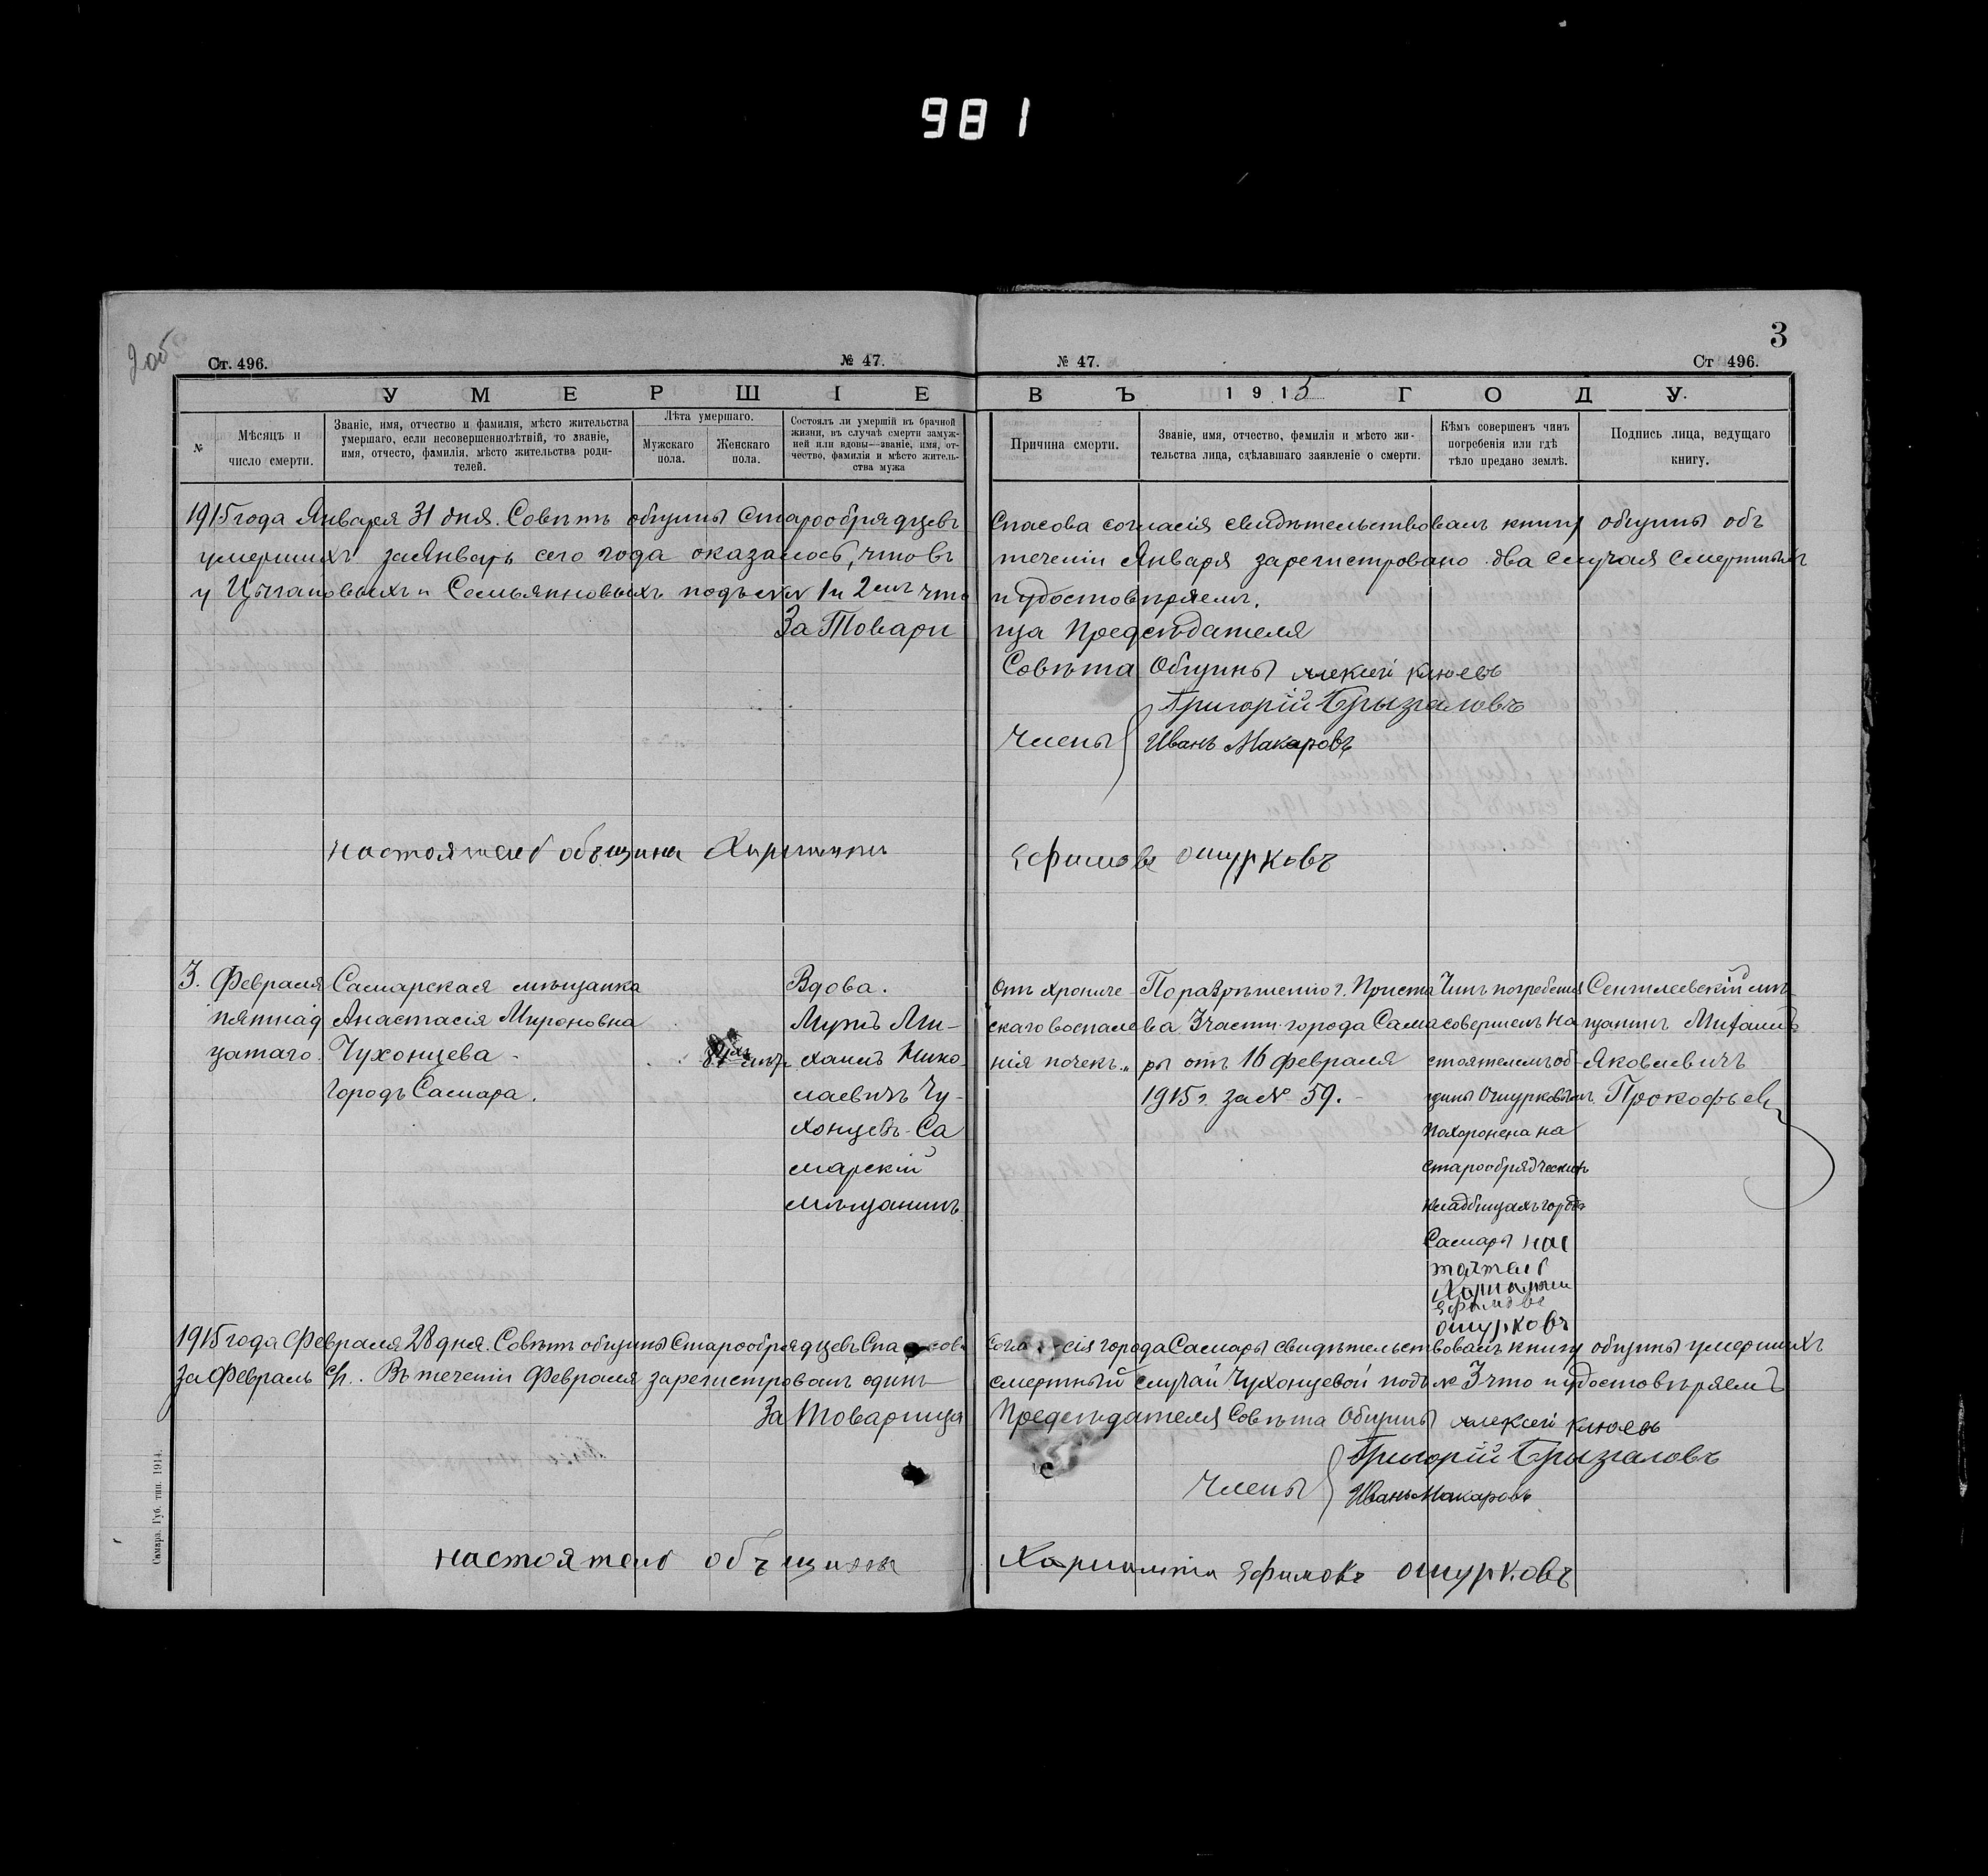 981
2 об
3
Ст. 496.
№ 47.
№ 47.
Ст 496.
УМЕРШІЕ
ВЪ 1915 ГОДУ.
№
Мѣсяцъ и число смерти.
Званіе, имя, отчество и фамилія, мѣсто жительства
умершаго, если несовершеннолѣтній, то званіе,
имя, отчесто, фамилія, мѣсто жительства роди-
телей.
Лѣта умершаго.
Мужскаго пола.
Женскаго пола.
Состоялъ ли умершій въ брачной
жизни, въ случаѣ смерти замуж-
ней или вдовы—званіе, имя, от-
чество, фамилія и мѣсто житель-
ства мужа
Причина смерти.
Званіе, имя, отчество, фамилія и мѣсто жи-
тельства лица, сдѣлавшаго заявленіе о смерти.
Кѣмъ совершенъ чинъ
погребенія или гдѣ
тѣло предано землѣ.
Подпись лица, ведущаго
книгу.
1915 года Января 31 дня. Совѣтъ общины Старообрядцевъ Спасова согласія свидѣтельствовалъ книгу общины объ
умершихъ за Январь сего года оказалось, что въ теченіи Января зарегистровано два случая смертныхъ
у Цыгановыхъ и Семьянновыхъ подъ №№ 1 и 2 мъ что и удостовѣряемъ.
За Товари ща Предсѣдателя
Совѣта Общины Алексѣй Клюевъ
Григорій Брызгаловъ
Члены Иванъ Макаровъ
настоятель общины Харлампи Ефимовъ Ошурковъ
3. Февраля
пятнад
цатаго.
Самарская мѣщанка
Анастасія Мироновна
Чухонцева
городъ Самара.
Вдова.
Мужъ Ми-
хаилъ Нико-
лаевичъ Чу-
хонцевъ Са
марскій
мѣщанинъ
Отъ хрониче
скаго воспале
нія почекъ.
По разрѣшенію г. Приста
ва 3 части города Сама
ры отъ 16 февраля
1915 г. за № 59.
Чинъ погребенія
совершенъ на
стоятелемъ об-
щины Ошурковымъ.
Похоронена на
старообрядческихъ
кладбищахъ города
Самары нас
тоятель
Харлампи
Ефимовъ
Ошурковъ
Сенгилеевскій мѣ-
щанинъ Михаилъ
Яковлевичъ
Прокофьевъ
1915 года Февраля 28 дня. Совѣтъ общины Старообрядцевъ Спасова Согласія города Самары свидѣтельствовалъ книгу общины умершихъ
за Февраль с/г. Въ теченіи Февраля зарегистрованъ одинъ смертный случай Чухонцевой подъ № 3 что и удостовѣряемъ
За Товарища Предсѣдателя Совѣта Общины Алексѣй Клюевъ
Григорій Брызгаловъ
Члены Иванъ Макаровъ
настоятель объщины Харлампи Ефимовъ Ошурковъ
Самара. Губ. тип. 1914.